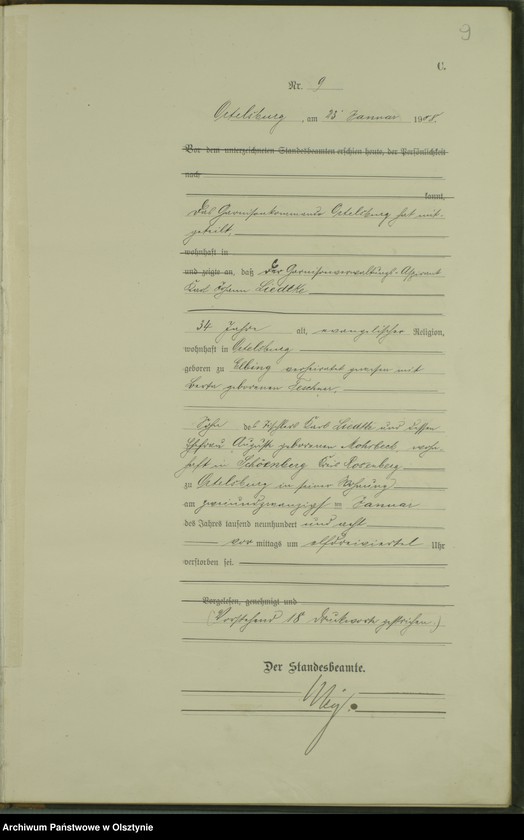 9
C.
Nr. 9
Ortelsburg, am 23 Januar 1908.
Vor dem unterzeichneten Standesbeamten erschien heute, der Persönlichkeit
nach
kannt,
Das Garnisonkommando Ortelsburg hat mit-
geteilt,
wohnhaft in
und zeigte an, daß der Garnisonverwaltungs-Aspirant
Karl Johann Liedtke
34 Jahre alt, evangelischer Religion,
wohnhaft in Ortelsburg
geboren zu Elbing verheiratet gewesen mit
Berta geborenen
Sohn des Karl Liedtke und dessen
Ehefrau Auguste geborenen wohn-
haft in Schönberg Kreis Rosenberg
zu Ortelsburg in seiner Wohnung
am zweiundzwanzigsten Januar
des Jahres tausend neunhundert und acht
vor mittags um elfdreiviertel Uhr
verstorben sei.
Vorgelesen, genehmigt und
(Vorstehend 18 Druckworte gestrichen.)
Der Standesbeamte.
Archiwum Państwowe w Olsztynie